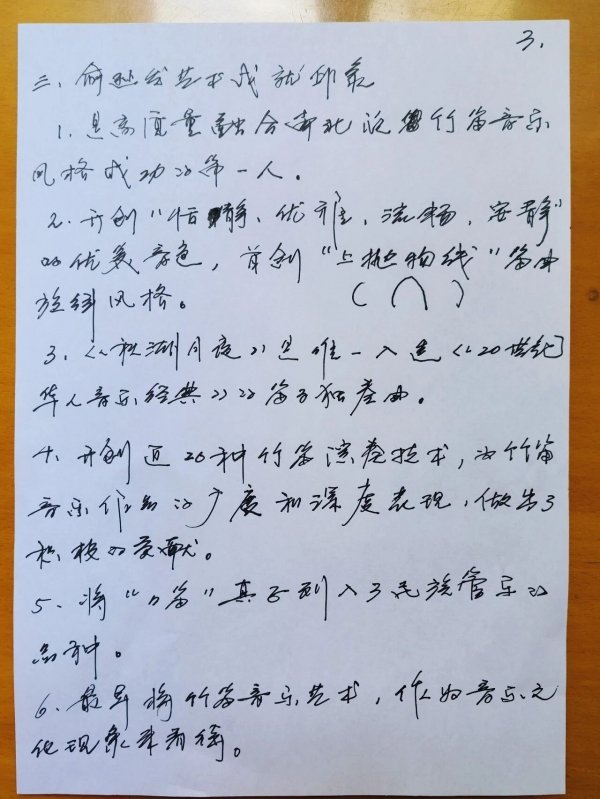 3.
三、俞逊发艺术成就印象
1. 是高质量融合南北派竹笛音乐
风格成功的第一人。
2. 开创“恬静、优雅、流畅、安静”
的优美音色，首创“上抛物线”笛曲
旋律风格。 ( ⌒ )
3、《秋湖月夜》是唯一入选《20世纪
华人音乐经典》的笛子独奏曲。
4、开创近20种竹笛演奏技术，为竹笛
音乐作品的广度和深度表现，做出了
积极的贡献。
5、将“口笛”真正列入了民族管乐的
品种。
6、最早将竹笛音乐艺术，作为音乐文
化现象来看待。